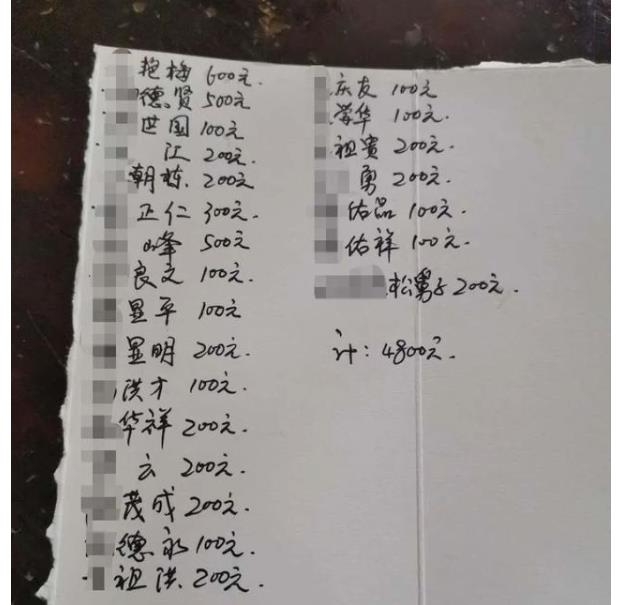 艳梅 600元.
德贤 500元
世国 100元
江 200元.
朝栋. 200元
正仁 300元.
峰 500元
良文 100元.
显平 100元
显明 200元.
洪才 100元.
华祥 200元.
云 200元.
茂成 200元.
德永 100元.
祖洪. 200元.
庆友 100元
荣华 100元.
祖贵 200元.
勇 200元.
佑品 100元.
佑祥 100元.
松舅子 200元.
计: 4800元.